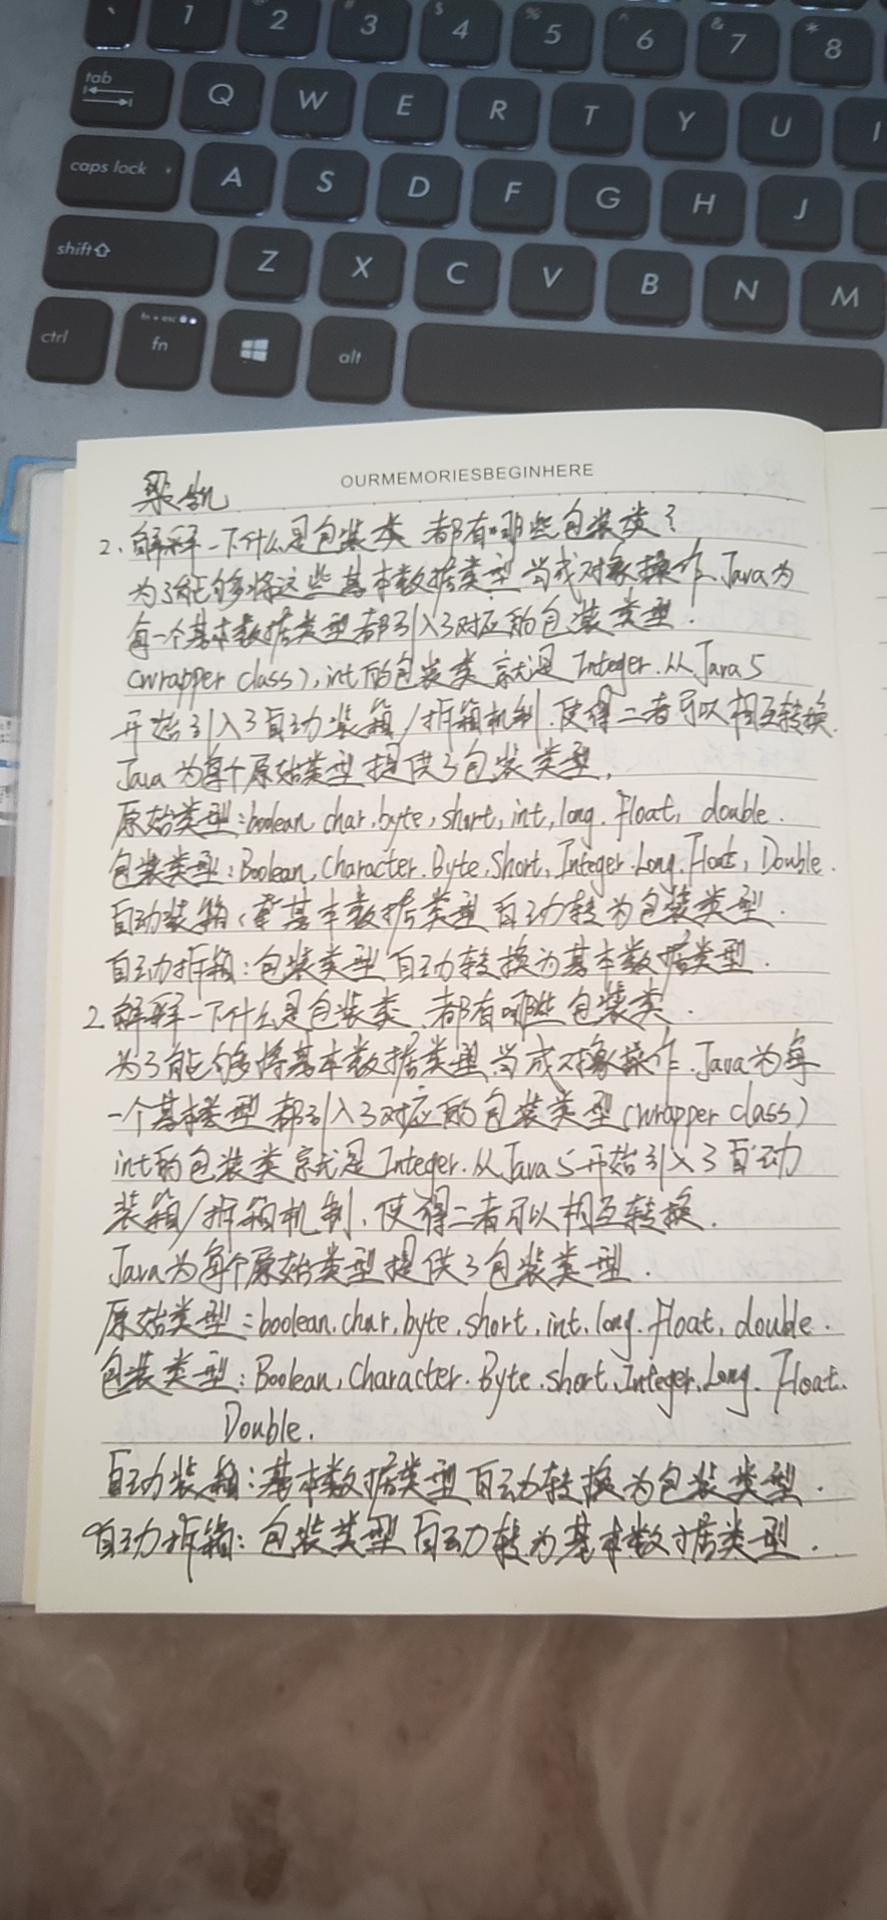 ` 1 2 3 4 5 6 7 8
# $ % ^ & *
tab Q W E R T Y U I
caps lock A S D F G H J
shift Z X C V B N M
fn + esc
ctrl fn alt
OURMEMORIESBEGINHERE
梁凯
2、解释一下什么是包装类 都有哪些包装类？
为了能够将这些基本数据类型当成对象操作、Java为
每一个基本数据类型都引入了对应的包装类型.
(wrapper class), int的包装类就是 Integer. 从 Java 5
开始引入了自动装箱/拆箱机制. 使得二者可以相互转换.
Java 为每个原始类型提供了包装类型.
原始类型: boolean, char, byte, short, int, long. Float, double.
包装类型: Boolean, Character. Byte, Short, Integer. Long. Float, Double.
自动装箱: 基本数据类型自动转为包装类型.
自动拆箱: 包装类型自动转换为基本数据类型.
2、解释一下什么是包装类、都有哪些包装类.
为了能够将基本数据类型当成对象操作. Java为每
一个基本类型都引入了对应的包装类型(wrapper class)
int的包装类就是 Integer. 从 Java 5 开始引入了自动
装箱/拆箱机制, 使得二者可以相互转换.
Java为每个原始类型提供了包装类型.
原始类型: boolean. char. byte. short. int. long. Float. double.
包装类型: Boolean, Character. Byte. short. Integer. Long. Float.
Double.
自动装箱: 基本数据类型自动转换为包装类型.
自动拆箱: 包装类型自动转为基本数据类型.